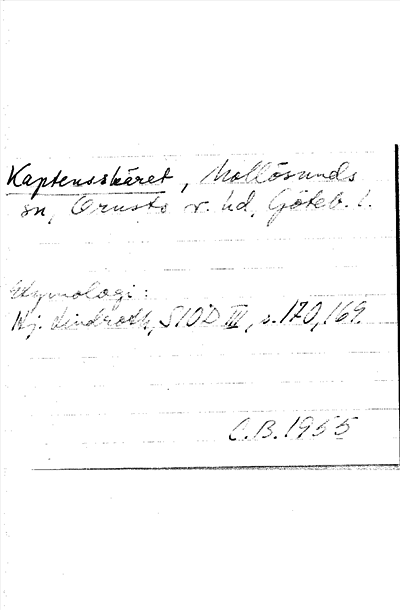 Kaptensskäret, Mollösunds
sn, Orusts v. hd, Göteb. l.
Etymologi:
Hj. Lindroth, SIOD III, s. 170, 169.
C.B. 1955